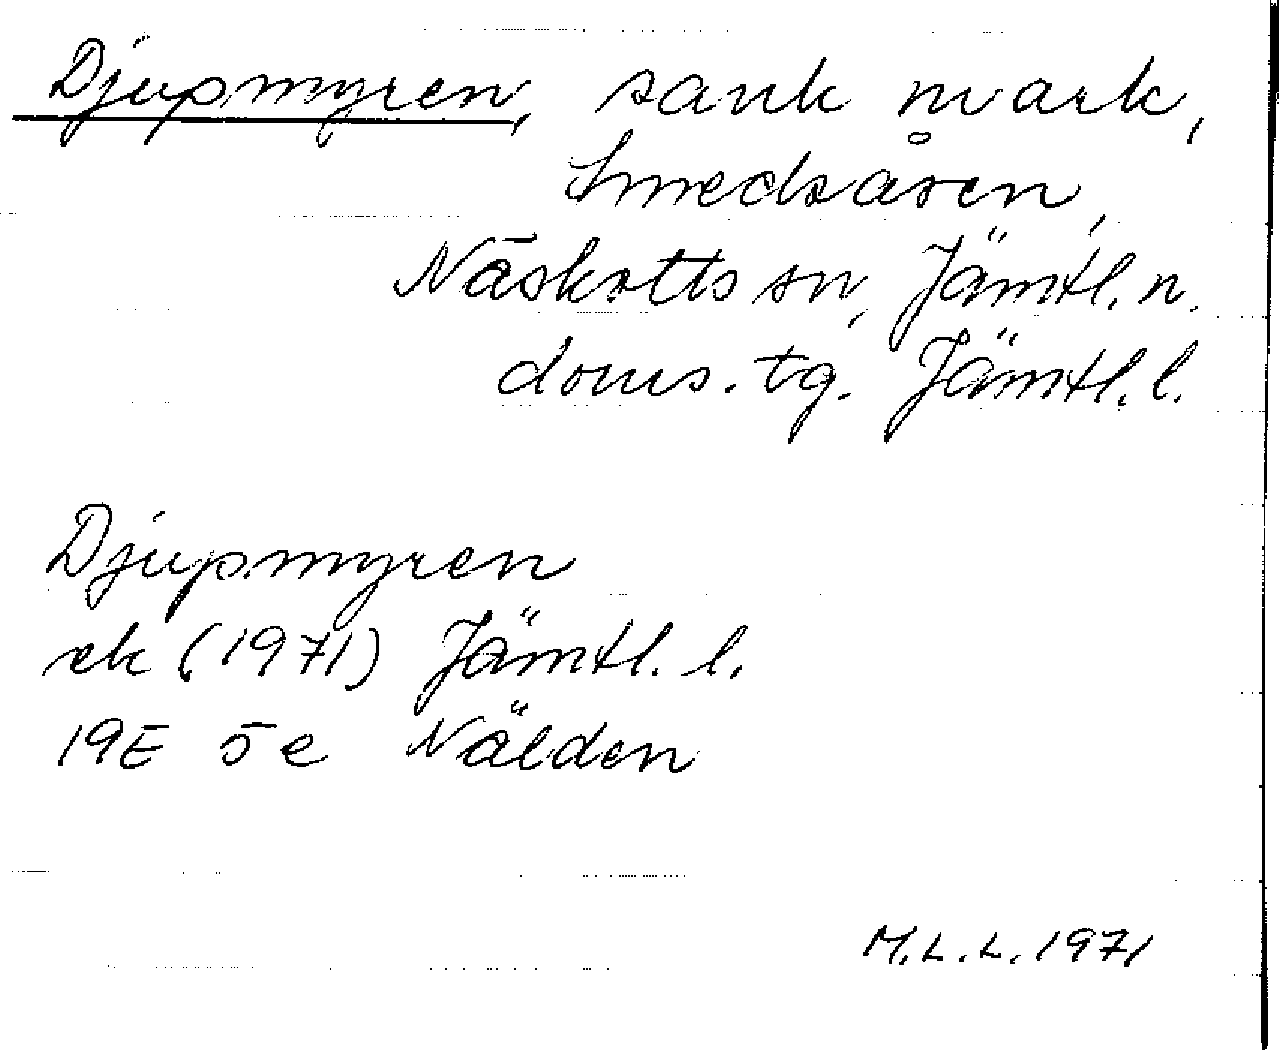 Djupmyren, sank mark,
Smedsåsen,
Näskotts sn, Jämtl. n.
doms. tg. Jämtl. l.
Djupmyren
ek (1971) Jämtl. l.
19E 5e Nälden
M.L.L. 1971